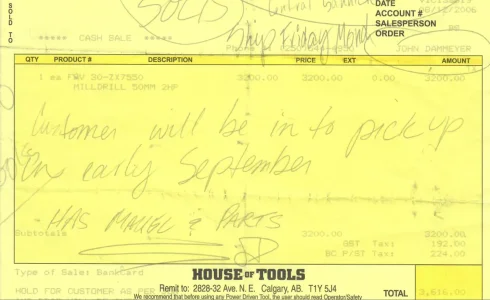 SOLD TO
SOLD
Central
Ship Friday
DATE
ACCOUNT #
SALESPERSON
ORDER
2006
***** CASH SALE *****
JOHN DAMMEYER
QTY PRODUCT # DESCRIPTION PRICE EXT AMOUNT
1 ea 30-ZX7550 3200.00 3200.00 0.00 3200.00
MILLDRILL 50MM 2HP
Customer will be in to pick up
early September
- HAS MANUEL & PARTS
Subtotals 3200.00 3200.00
GST Tax: 192.00
BC P/ST Tax: 224.00
Type of Sale: BankCard
HOUSE OF TOOLS
HOLD FOR CUSTOMER AS PER
Remit to: 2828-32 Ave. N.E. Calgary, AB. T1Y 5J4
TOTAL 3,616.00
We recommend that before using any Power Driven Tool, the user should read Operator/Safety